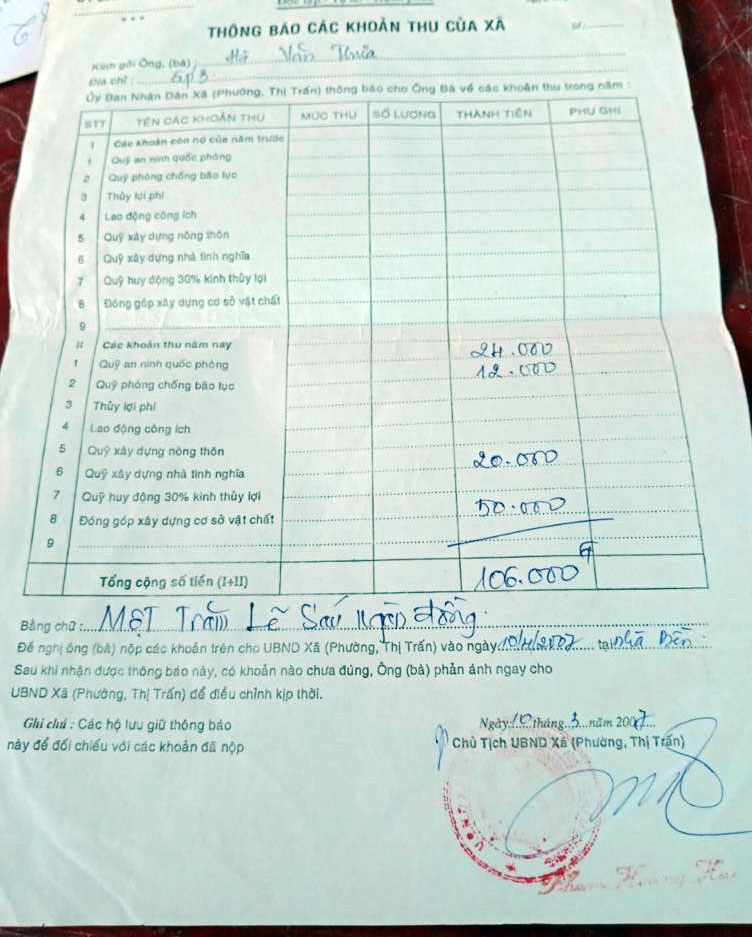 * * *
THÔNG BÁO CÁC KHOẢN THU CỦA XÃ
Số:
Kính gửi Ông, (bà) : Hà Văn Thừa
Địa chỉ : ấp 3
Ủy Ban Nhân Dân Xã (Phường, Thị Trấn) thông báo cho Ông Bà về các khoản thu trong năm :
STT TÊN CÁC KHOẢN THU MỨC THU SỐ LƯỢNG THÀNH TIỀN PHỤ GHI
I Các khoản còn nợ của năm trước
1 Quỹ an ninh quốc phòng
2 Quỹ phòng chống bão lục
3 Thủy lợi phí
4 Lao động công ích
5 Quỹ xây dựng nông thôn
6 Quỹ xây dựng nhà tình nghĩa
7 Quỹ huy động 30% kinh thủy lợi
8 Đóng góp xây dựng cơ sở vật chất
9
II Các khoản thu năm nay 24.000
1 Quỹ an ninh quốc phòng 12.000
2 Quỹ phòng chống bão lục
3 Thủy lợi phí
4 Lao động công ích
5 Quỹ xây dựng nông thôn 20.000
6 Quỹ xây dựng nhà tình nghĩa
7 Quỹ huy động 30% kinh thủy lợi 50.000
8 Đóng góp xây dựng cơ sở vật chất
9
Tổng cộng số tiền (I+II) 106.000đ
Bằng chữ : Một Trăm Lẽ Sáu ngàn đồng.
Đề nghị ông (bà) nộp các khoản trên cho UBND Xã (Phường, Thị Trấn) vào ngày 10/4/2007 tại nhà Bền
Sau khi nhận được thông báo này, có khoản nào chưa đúng, Ông (bà) phản ánh ngay cho
UBND Xã (Phường, Thị Trấn) để điều chỉnh kịp thời.
Ghi chú : Các hộ lưu giữ thông báo
này để đối chiếu với các khoản đã nộp
Ngày 10 tháng 3 năm 2007
Chủ Tịch UBND Xã (Phường, Thị Trấn)
Phạm Hoàng